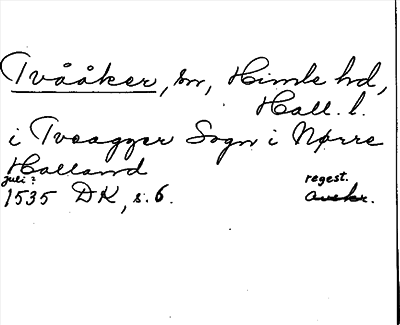 Tvååker, sn, Himle hd,
Hall. l.
i Tvoagger Sogn i Nørre
Halland
juli? regest.
1535 DK, s. 6. avskr.